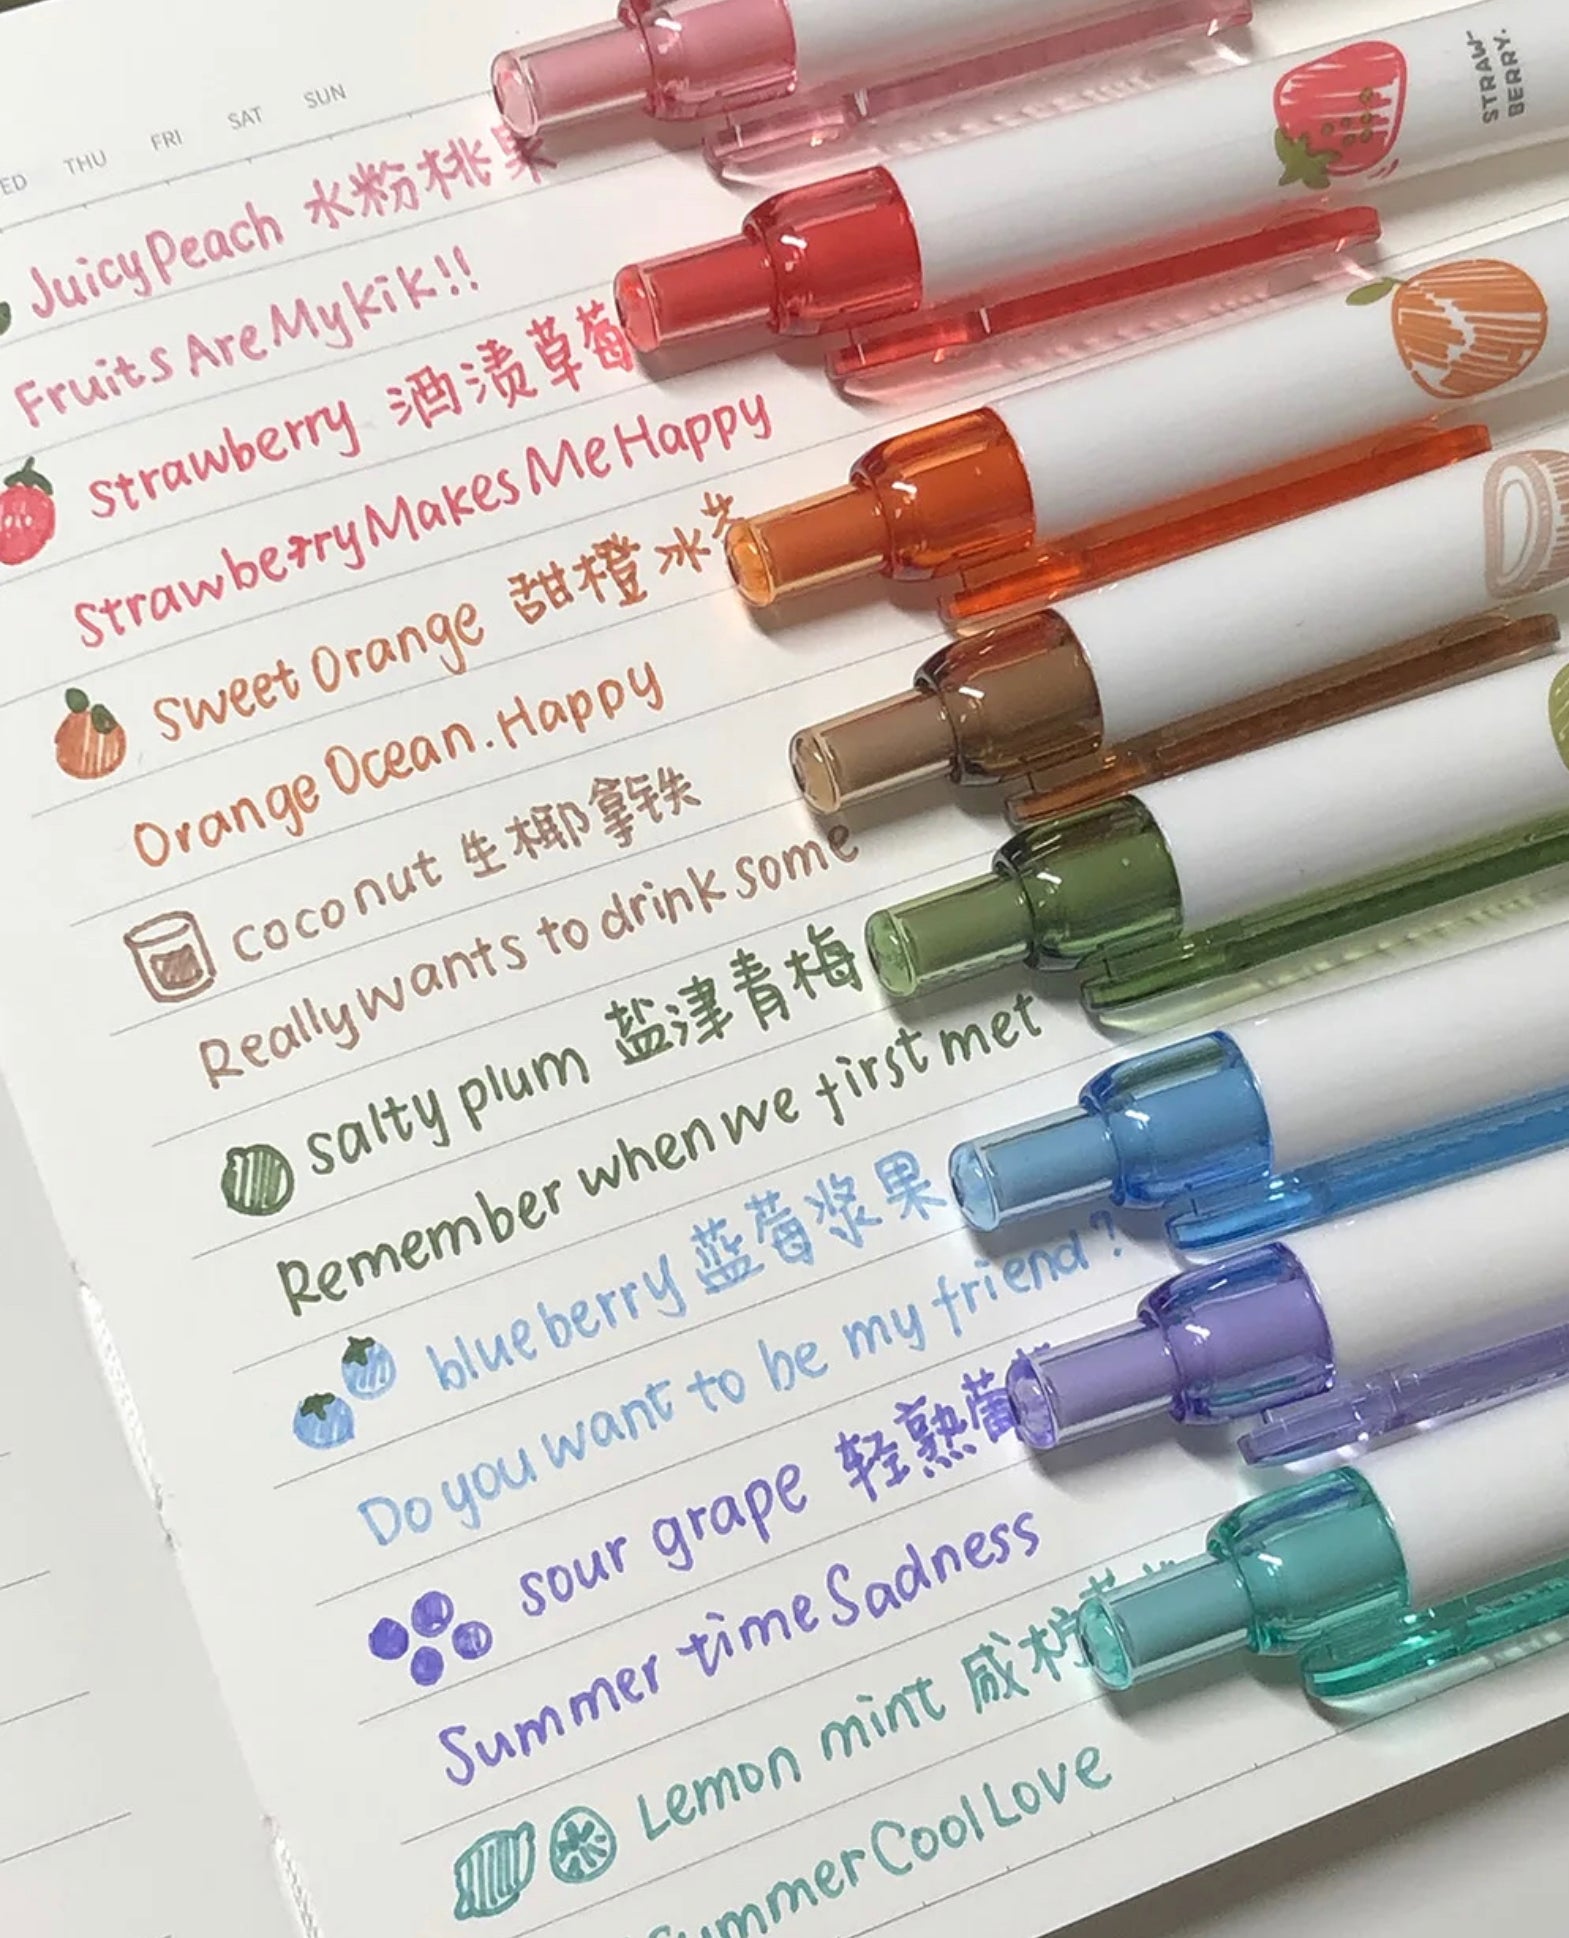 THU FRI SAT SUN
STRAW-
BERRY.
Juicy Peach 水粉桃果
Fruits Are My kik!!
Strawberry 酒渍草莓
Strawberry Makes Me Happy
Sweet Orange 甜橙冰
Orange Ocean. Happy
coconut 生椰拿铁
Really wants to drink some
salty plum 盐津青梅
Remember when we first met
blueberry 蓝莓浆果
Do you want to be my friend?
sour grape 轻熟
Summer time Sadness
Lemon mint 咸柠
Summer Cool Love